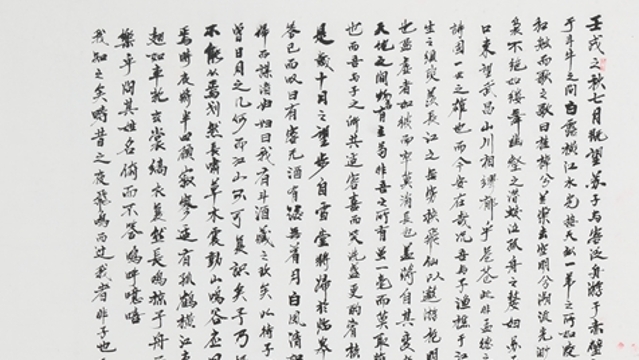 壬戌之秋七月既望蘇子与客泛舟游于赤壁
于斗牛之间白露横江水光接天縱一葦之所如凌
扣舷而歌之歌曰桂棹兮蘭槳击空明兮溯流光
裊不絕如縷舞幽壑之潛蛟泣孤舟之嫠婦
口東望武昌山川相繆鬱乎蒼蒼此非孟德
詩固一世之雄也而今安在哉況吾与子漁樵于江
生之須臾羨長江之無窮挾飛仙以遨游抱明
也盈虛者如彼而卒莫消長也蓋將自其變
天地之間物各有主苟非吾之所有雖一毫而莫取
也而吾与子之所共適客喜而笑洗盞更酌肴核
是歲十月之望步自雪堂將歸於臨皋
答已而叹曰有客无酒有酒無肴月白風清如
歸而謀諸婦婦曰我有斗酒藏之久矣以待子
曾日月之几何而江山不可复識矣予乃
不能從焉劃然長嘯草木震動山鳴谷應
焉時夜將半四顧寂寥適有孤鶴橫江東
翅如車輪玄裳縞衣戛然長鳴掠予舟而
樂乎問其姓名俛而不答嗚呼噫嘻
我知之矣疇昔之夜飛鳴而过我者非子也